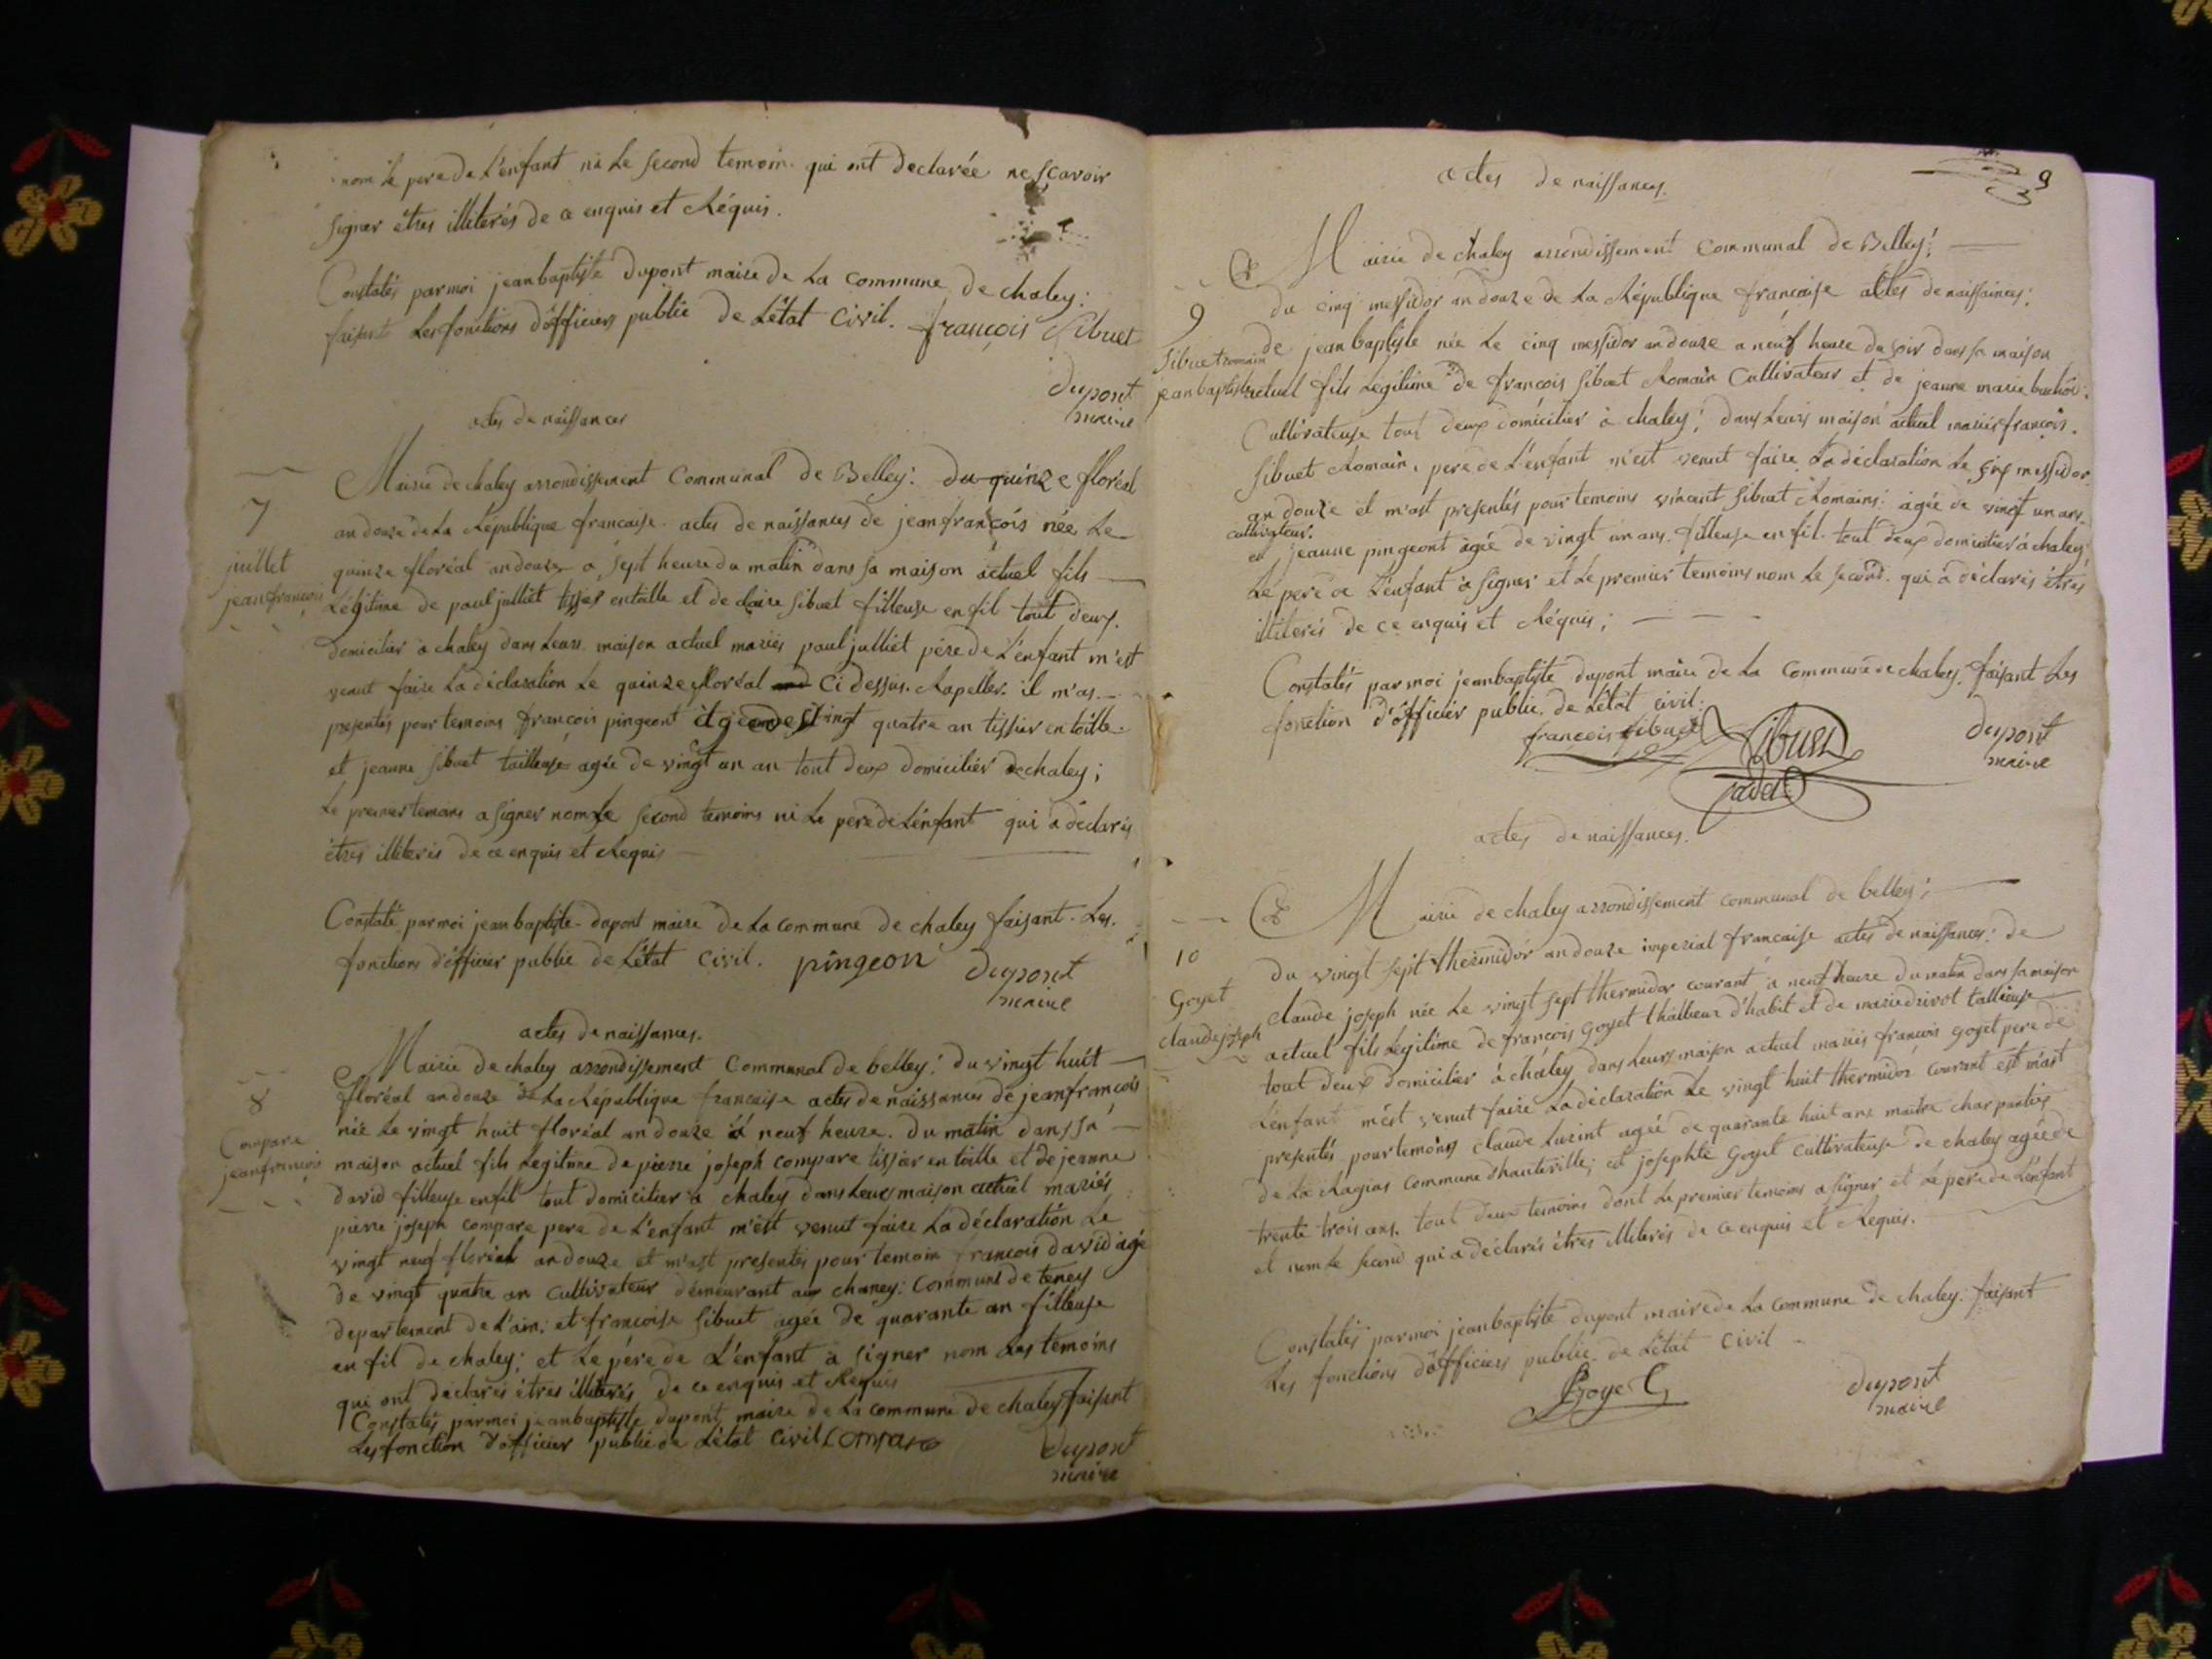 nom le pere de L'enfant ni Le second temoin qui ont declarée ne scavoir
signer êtres illiterés de ce enquis et Réquis.
Constatés par moi jean baptiste dupont maire de La commune de chaley:
faisant Les fonctions d'officiers public de L'état Civil. françois Sibuet
dupont
maire
actes de naissances
7
juillet
jean francois
Mairie de chaley arrondissement Communal de Belley: du quinze floréal
an douze de La République francaise. actes de naissances de jean françois née Le
quinze floréal an douze a sept heure du matin dans sa maison actuel fils
Légitime de paul julliet tissier en toille et de claire sibuet filleuse en fil tout deux.
domicilier à chaley dans Leurs maison actuel mariés paul julliet père de L'enfant m'est
venut faire La déclaration Le quinze floréal ci dessus. Rapeller. il m'as
presentés pour temoins françois pingeont âgée de vingt quatre an tissier en toille
et jeanne sibuet tailleuse agée de vingt un an tout deux domiciliér de chaley;
Le premier temoins a signer nom Le second temoins ni Le pere de L'enfant qui a déclarés
êtres illiterés de ce enquis et Requis
Constaté par moi jean baptiste dupont maire de La commune de chaley faisant Les.
fonctions d'officier public de L'état Civil. pingeon
dupont
maire
actes de naissances.
8
Compare
jean françois
Mairie de chaley arrondissement Communal de belley: du vingt huit
floréal an douze de La République francaise actes de naissances de jean françois
née Le vingt huit floréal an douze à neuf heure. du matin dans sa
maison actuel fils Legitime de pierre joseph compare tissier en toille et de jeanne
david filleuse en fil tout domicilier à chaley dans Leurs maison actuel mariés
pierre joseph compare pere de L'enfant m'est venut faire La déclaration Le
vingt neuf floréal an douze et m'ast presentés pour temoin francois david agé
de vingt quatre an cultivateur demeurant au chaney: Commune de teney
departement de L'ain; et francoise sibuet agée de quarante an filleuse
en fil de chaley; et Le pére de L'enfant a signer nom Les temoins
qui ont declarés êtres illiterés de ce enquis et Requis
Constatés par moi jean baptiste dupont maire de La commune de chaley faisant
Les fonction d'officier public de L'état Civil Compare
dupont
maire
actes de naissances.
9
Mairie de chaley arrondissement Communal de Belley:
9
Sibuet romain
jean baptiste
du cinq messidor an douze de La République francaise actes de naissances;
de jean baptiste née Le cinq messidor an douze a neuf heure du soir dans sa maison
actuel fils Légitime de françois sibuet Romain Cultivateur et de jeanne marie
Cultivateuse tout deux domicilier à chaley; dans Leurs maison actuel mariés françois.
Sibuet Romain, pere de L'enfant m'est venut faire La déclaration Le six messidor
an douze et m'ast presentés pour temoins vincent sibuet Romains: agée de vingt un ans
cultivateur.
et jeanne pingeont âgée de vingt un ans. filleuse en fil tout deux domicilier à chaley;
Le pere de L'enfant à signer et Le premier temoins nom Le second. qui à déclarés êtres
illiterés de ce enquis et Réquis;
Constatés par moi jean baptiste dupont maire de La Commune de chaley. faisant Les
fonction d'officier public de L'état civil:
françois sibuet Sibuet
dupont
maire
actes de naissances.
Mairie de chaley arrondissement communal de belley;
10
Goyet
claude joseph
du vingt sept thermidor an douze imperial francaise actes de naissances: de
claude joseph née Le vingt sept thermidor courant à neuf heure du matin dans sa maison
actuel fils Legitime de françois Goyet thalieur d'habit et de marie drivot tallieuse
tout deux domicilier à chaley dans Leurs maison actuel mariés francois Goyet pere de
L'enfant m'ést venut faire La déclaration Le vingt huit thermidor courant est m'ast
presentés pour temoins claude agée de quarante huit ans maitre charpantier
de La commune d'hauteville; et josephte Goyet cultivateuse de chaley agée de
trente trois ans. tout deux temoins dont Le premier temoins a signer et Le pere de L'enfant
et nom Le second qui a déclarés êtres illiterés de ce enquis et Requis.
Constatés par moi jean baptiste dupont maire de La commune de chaley: faisant
Les fonctions d'officiers public de L'état Civil
Goyet
dupont
maire